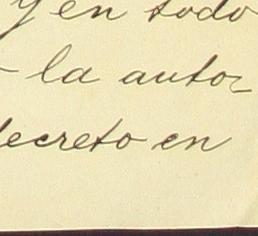 y en todo
- la autor
decreto en